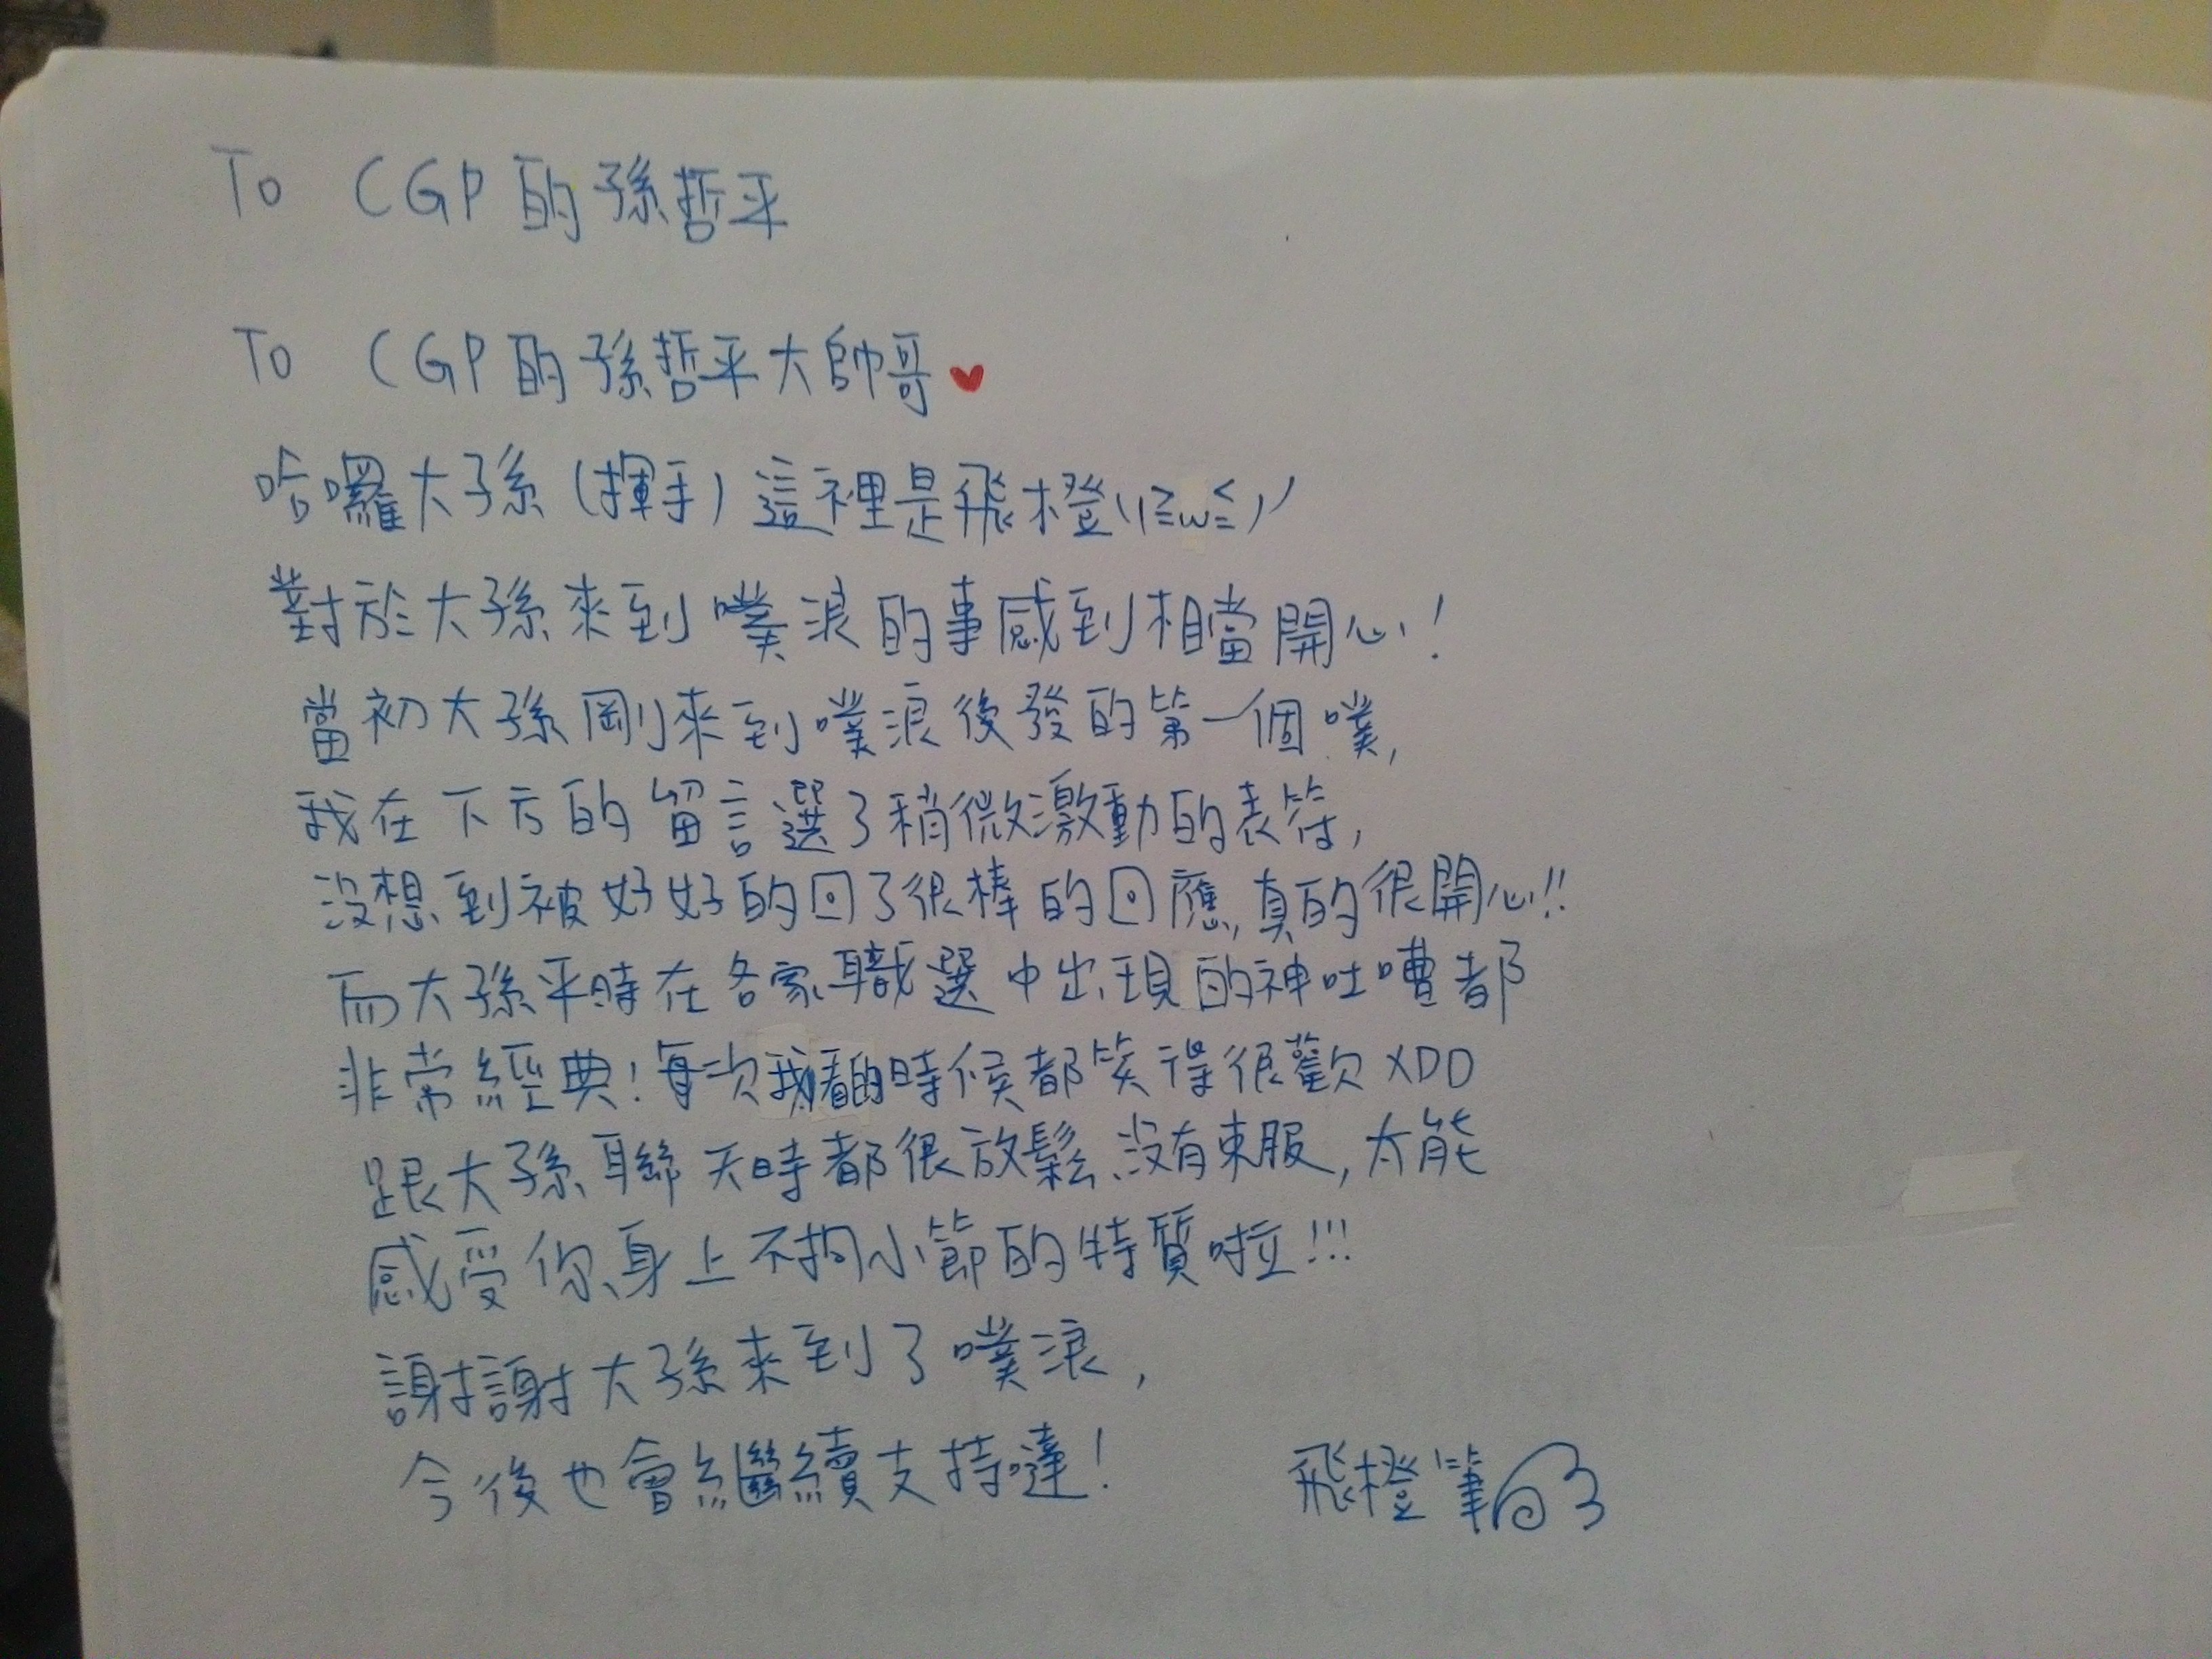 To CGP的孫哲平
To CGP的孫哲平大帥哥♥
哈囉大孫(揮手)這裡是飛橙\(≧ω≦)/
對於大孫來到噗浪的事感到相當開心!
當初大孫剛來到噗浪後發的第一個噗,
我在下方的留言選了稍微激動的表符,
沒想到被好好的回了很棒的回應,真的很開心!!
而大孫平時在各家職選中出現的神吐嘈都
非常經典!每次我看的時候都笑得很歡XDD
跟大孫聯天時都很放鬆、沒有束服,太能
感受你身上不拘小節的特質啦!!!
謝謝大孫來到了噗浪,
今後也會繼續支持噠!
飛橙筆